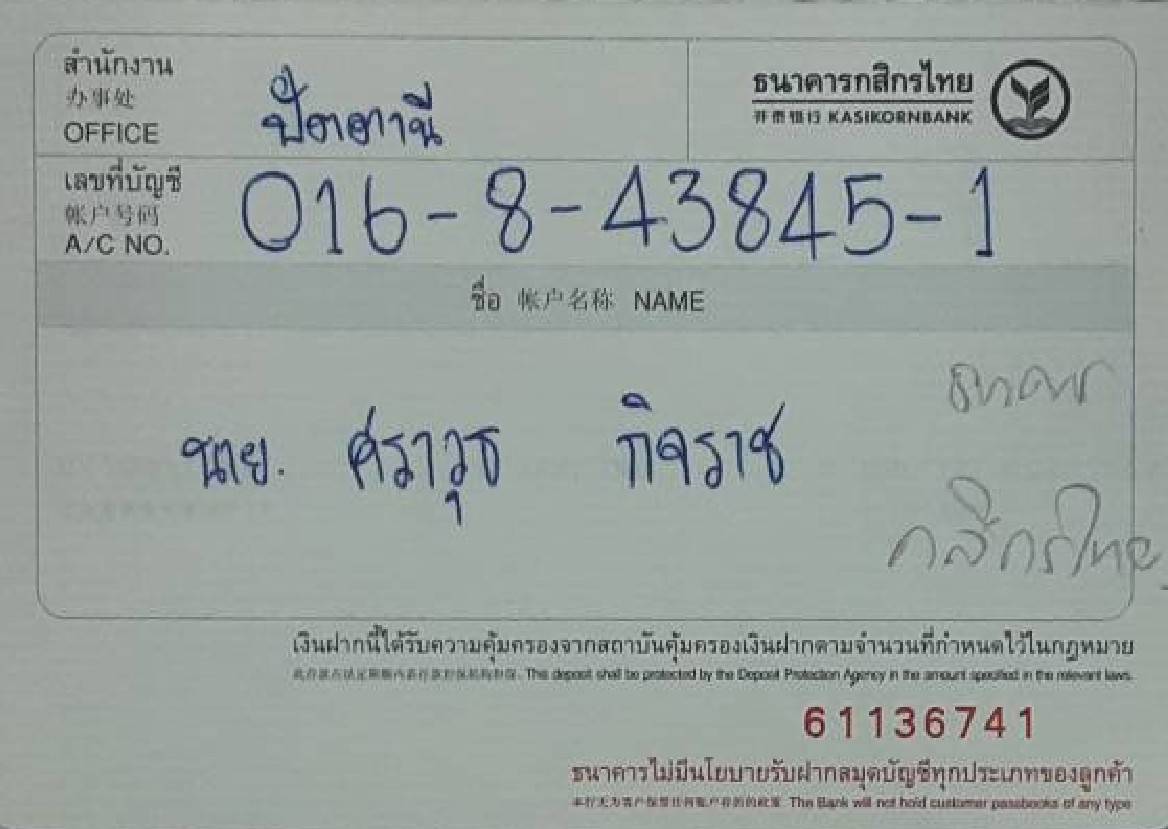 สำนักงาน
办事处
OFFICE
ปัตตานี
ธนาคารกสิกรไทย
开泰银行 KASIKORNBANK
เลขที่บัญชี
帐户号码
A/C NO.
016-8-43845-1
ชื่อ 帐户名称 NAME
นาย. ศราวุธ กิจราช
ธนาคาร
กสิกรไทย
เงินฝากนี้ได้รับความคุ้มครองจากสถาบันคุ้มครองเงินฝากตามจำนวนที่กำหนดไว้ในกฎหมาย
The deposit shall be protected by the Deposit Protection Agency in the amount specified in the relevant laws.
61136741
ธนาคารไม่มีนโยบายรับฝากสมุดบัญชีทุกประเภทของลูกค้า
The Bank will not hold customer passbooks of any type